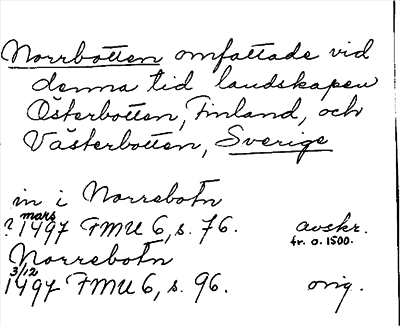 Norrbotten omfattade vid
denna tid landskapen
Österbotten, Finland, och
Västerbotten, Sverige
in i Norrebotn
? mars 1497 FMU 6, s. 76. avskr. fr. o. 1500.
Norrebotn
3/12 1497 FMU 6, s. 96. orig.